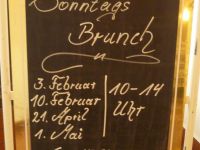 Sonntags
Brunch
3. Februar
10. Februar
21. April
1. Mai
10-14
Uhr